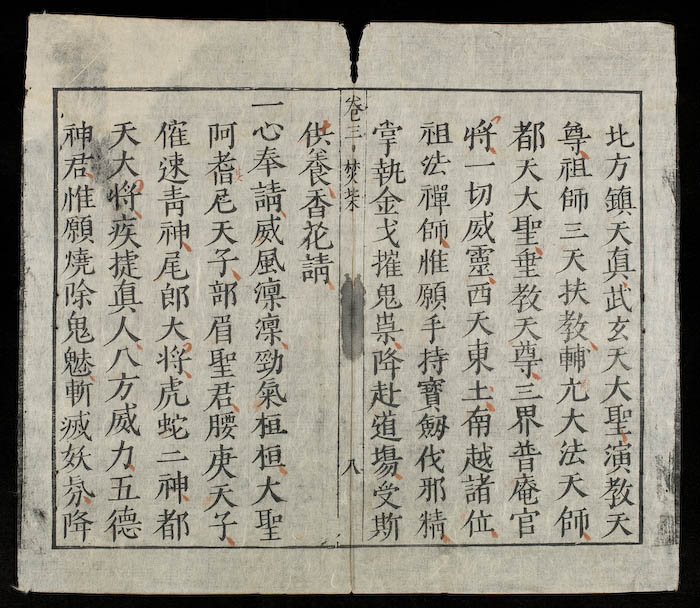 北方鎮天真武玄天大聖演教天
尊祖師三天扶教輔元大法天師
都天大聖垂教天尊三界普庵官
將一切威靈西天東土南越諸位
祖法禪師惟願手持寶劔伐邪精
掌執金戈摧鬼祟降赴道場受斯
卷三 焚柴 八
供養香花請
一心奉請威風凛凛勁氣桓桓大聖
阿耆尼天子部眉聖君腰庚天子
催速青神尾郎大將虎蛇二神都
天大將疾捷真人八方威力五德
神君惟願燒除鬼魅斬滅妖氛降